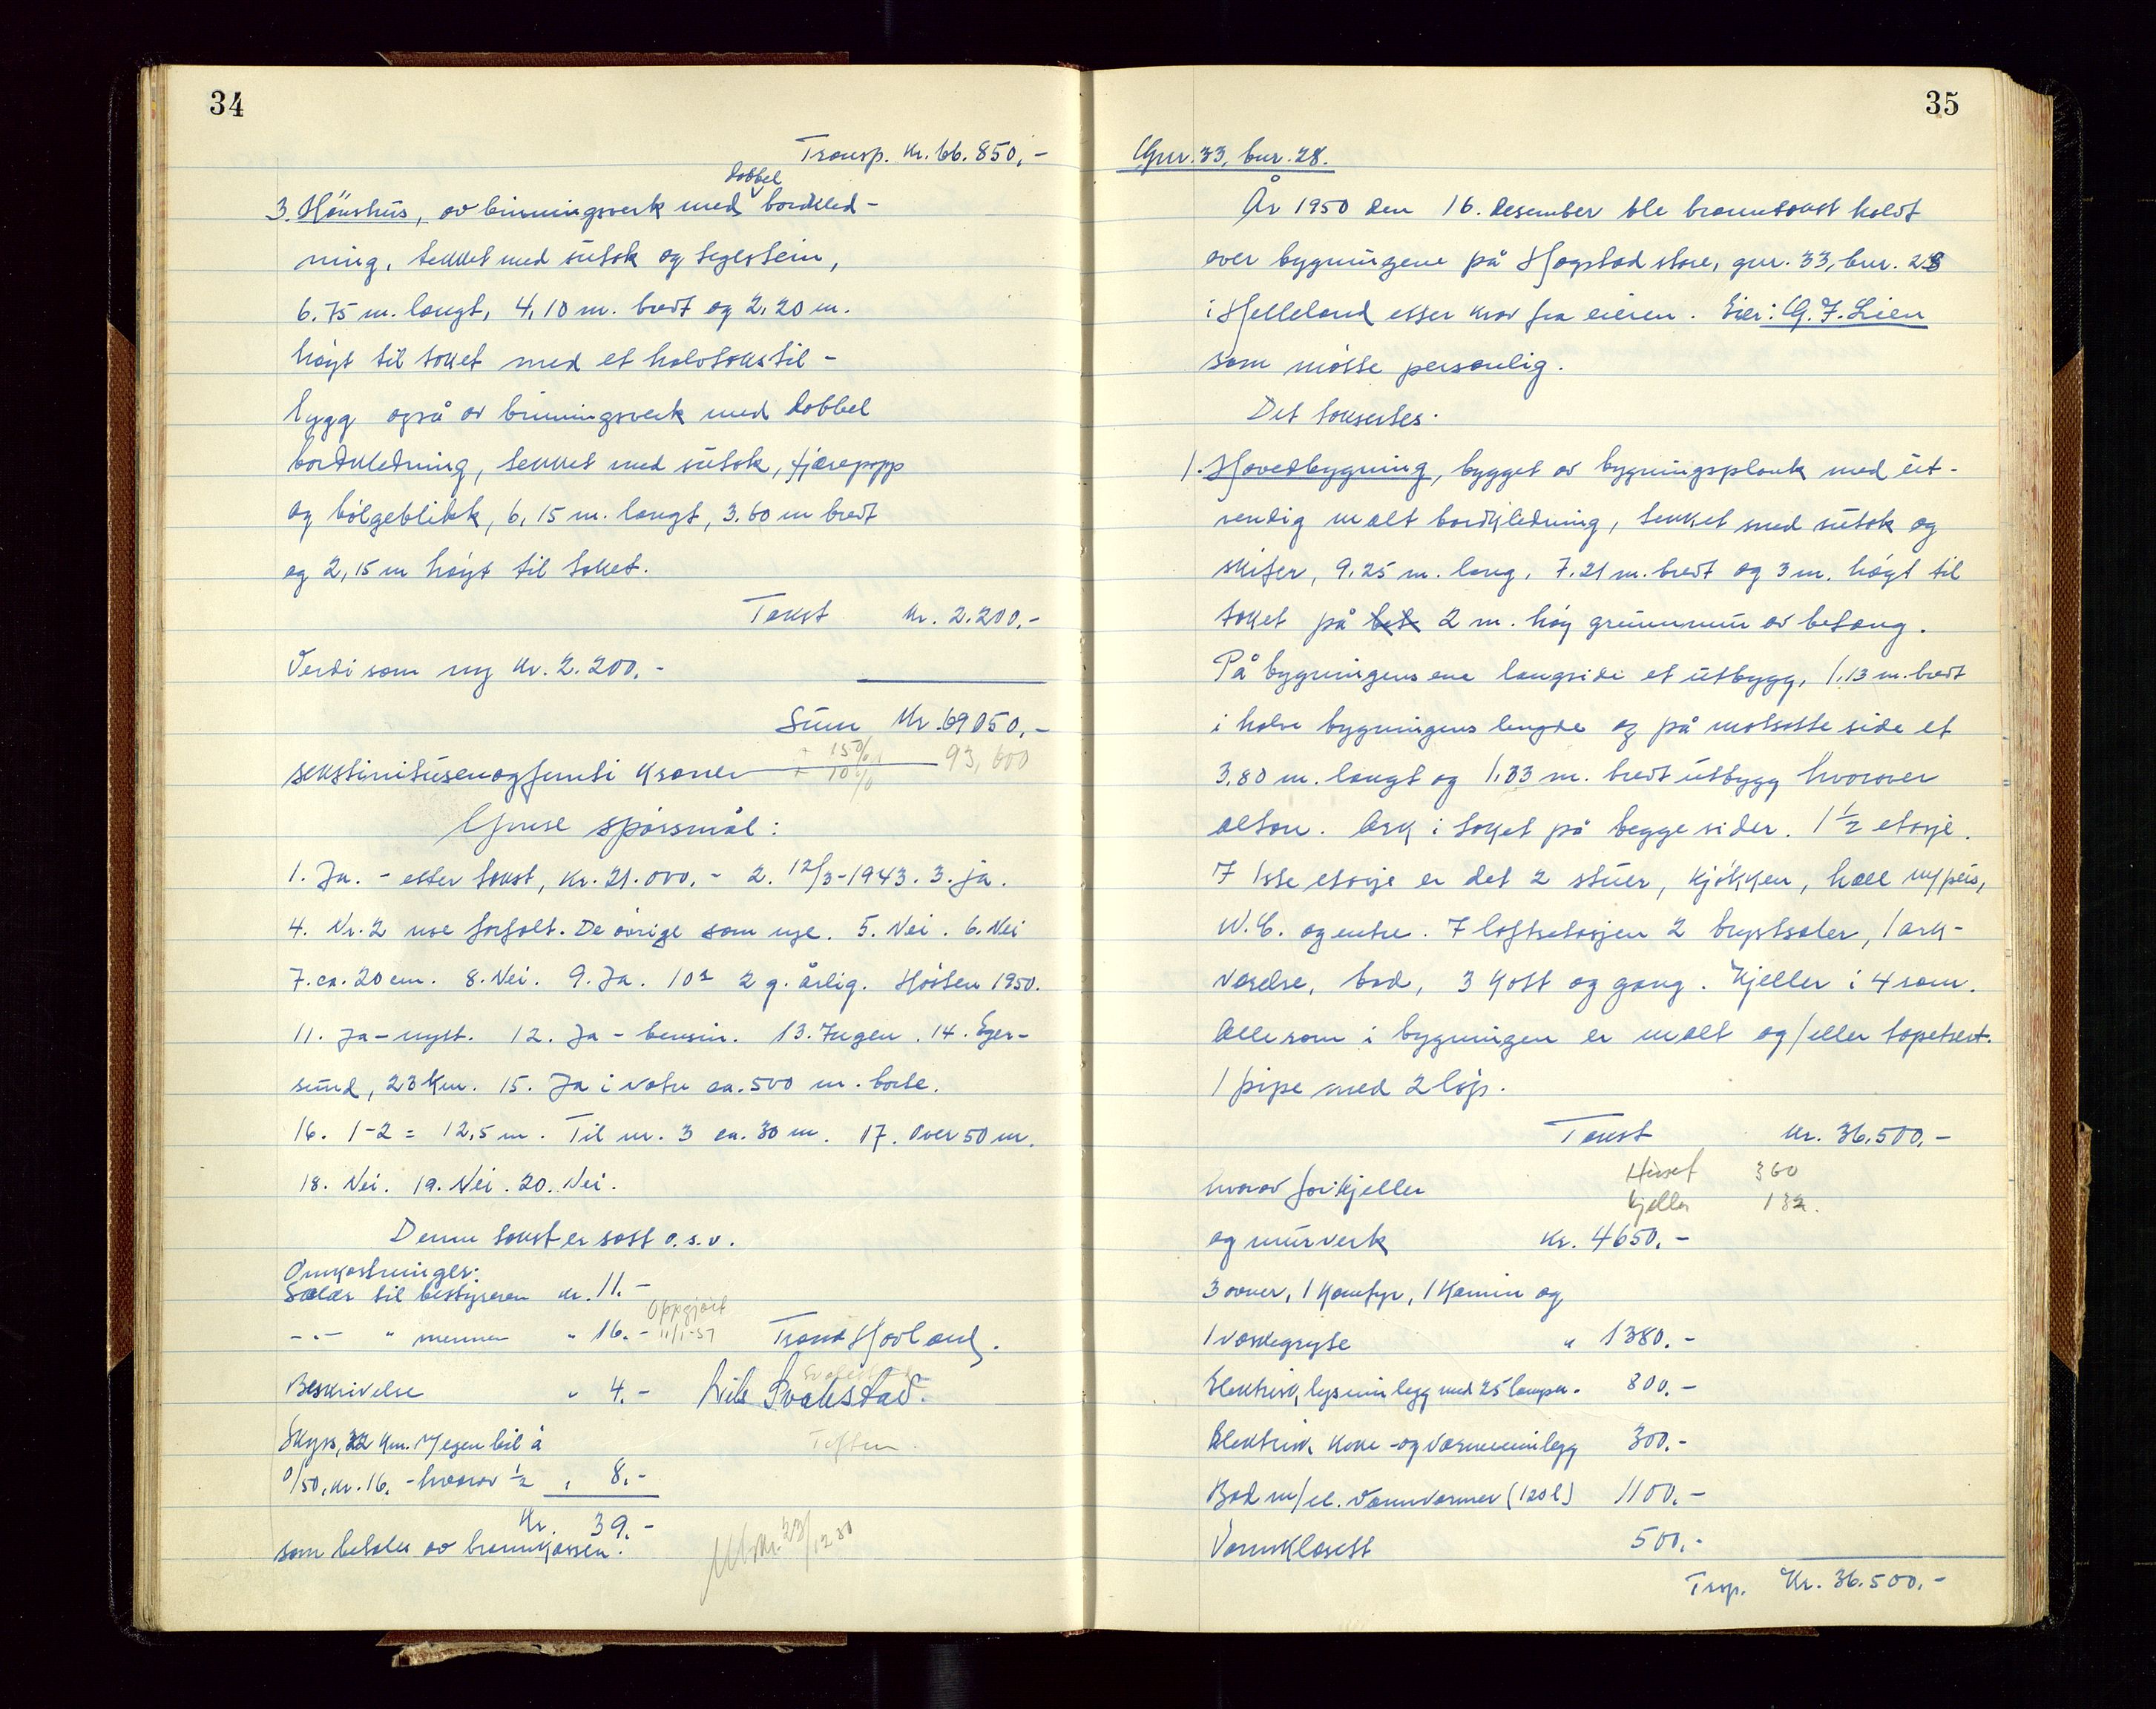 34
Transp. kr. 66.850,-
dobbel
3. Hönshus, av binningsverk med bordkled-
ning, tekket med sutak og teglstein,
6.75 m. langt, 4,10 m. bredt og 2,20 m.
høyt til taket med et halvtakstil-
bygg også av binningsverk med dobbel
bordkledning, tekket med sutak, tjærepapp
og bølgeblikk, 6,15 m. langt, 3.60 m bredt
og 2,15 m høyt til taket.
Takst kr. 2.200.-
Verdi som ny kr. 2.200.-
Sum kr. 69050.-
+ 15%
sekstinitusenogfemti kroner 93,600
+ 10%
Ymse spørsmål:
1. Ja. - etter takst, kr. 21.000.- 2. 12/3-1943. 3. ja.
4. Nr. 2 noe forfalt. De øvrige som nye. 5. Nei. 6. Nei
7. ca. 20 cm. 8. Nei. 9. Ja. 10 2 g. årlig. Høsten 1950.
11. Ja - nytt. 12. Ja - bensin. 13. Ingen. 14. Eger-
sund, 23 km. 15. Ja i vatn ca. 500 m. borte.
16. 1-2 = 12,5 m. Til nr. 3 ca. 30 m. 17. Over 50 m.
18. Nei. 19. Nei. 20. Nei.
Denne takst er satt o.s.v.
Omkostninger:
Salær til bestyreren kr. 11.-
-"- " mennene " 16.- Oppgjort 11/1-51 Trond Hovland.
Beskrivelse " 4.- Nils Svalestad.
Skyss, 32 km. m/egen bil à
0/50, kr. 16. - hvorav ½ " 8.-
Kr. 39.-
som betales av brannkassen.
Utskr. 23/12 50
35
Gnr. 33, bnr. 28.
År 1950 den 16. desember ble branntakst holdt
over bygningene på Høgstad store, gnr. 33, bnr. 28
i Helleland etter krav fra eieren. Eier: G. J. Lien
som møtte personlig.
Det takseres:
1. Hovedbygning, bygget av bygningsplank med ut-
vendig malt bordkledning, tekket med sutak og
skifer, 9.25 m. lang, 7.21 m. bredt og 3 m. høyt til
taket på bet 2 m. høy grunnmur av betong.
På bygningens ene langside et utbygg, 1,13 m. bredt
i halve bygningens lengde og på motsatte side et
3,80 m. langt og 1,33 m. bredt utbygg hvorover
altan. Ark i taket på begge sider. 1 ½ etasje.
I 1ste etasje er det 2 stuer, kjøkken, hall m/peis,
W.C. og entre. I loftsetasjen 2 brystsaler, 1 ark-
værelse, bad, 3 kott og gang. Kjeller i 4 rom.
Alle rom i bygningen er malt og/eller tapetsert.
1 pipe med 2 løp.
Takst kr. 36.500.-
Huset 360
hvorav for: kjeller
kjeller 132.
og murverk kr. 4650.-
3 ovner, 1 komfyr, 1 kamin og
1 vaskegryte " 1380.-
Elektrisk lysinnlegg med 25 lamper. 800.-
Elektrisk koke- og varmeinnlegg 300.-
Bad m/el. vannvarmer (120 l) 1100.-
Vannklosett 500.-
Trsp. Kr. 36.500.-